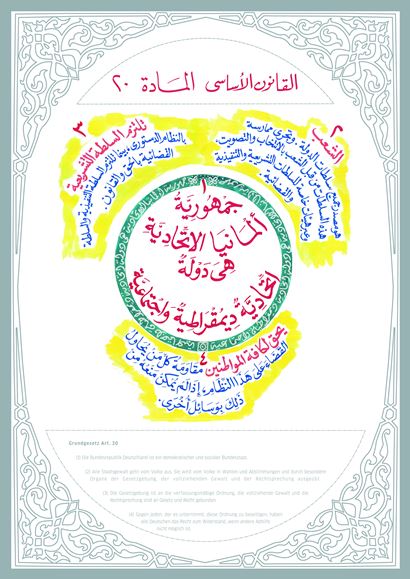 القانون الأساسي المادة ٢٠
١
جمهورية
ألمانيا الاتحادية
هي دولة
اتحادية ديمقراطية واجتماعية
٢
الشعب
هو مصدر جميع سلطات الدولة. وتجري ممارسة
هذه السلطات من قبل الشعب بالانتخاب والتصويت،
وعبر هيئات خاصة للسلطات التشريعية والتنفيذية
والقضائية.
٣
تلتزم السلطة التشريعية
بالنظام الدستوري، بينما تلتزم السلطة التنفيذية والسلطة
القضائية بالحق والقانون.
٤
يحق لكافة المواطنين مقاومة كل من يحاول
القضاء على هذا النظام، إذا لم يمكن منعه من
ذلك بوسائل أخرى.
Grundgesetz Art. 20
(1) Die Bundesrepublik Deutschland ist ein demokratischer und sozialer Bundesstaat.
(2) Alle Staatsgewalt geht vom Volke aus. Sie wird vom Volke in Wahlen und Abstimmungen und durch besondere
Organe der Gesetzgebung, der vollziehenden Gewalt und der Rechtsprechung ausgeübt.
(3) Die Gesetzgebung ist an die verfassungsmäßige Ordnung, die vollziehende Gewalt und die
Rechtsprechung sind an Gesetz und Recht gebunden.
(4) Gegen jeden, der es unternimmt, diese Ordnung zu beseitigen, haben
alle Deutschen das Recht zum Widerstand, wenn andere Abhilfe
nicht möglich ist.